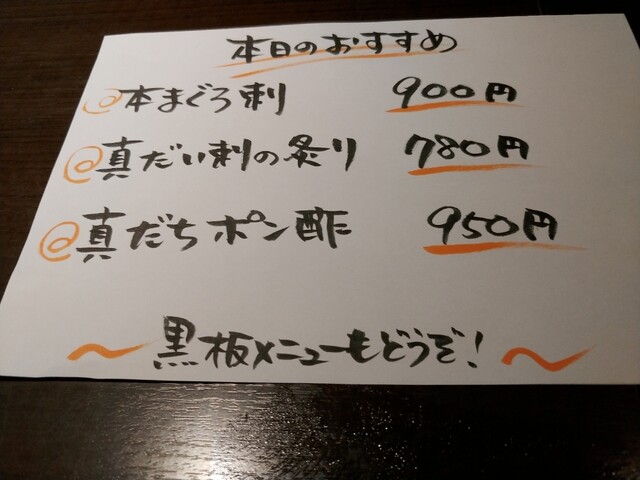 本日のおすすめ
@本まぐろ刺 900円
@真だい刺の炙り 780円
@真だちポン酢 950円
〜黒板メニューもどうぞ!〜